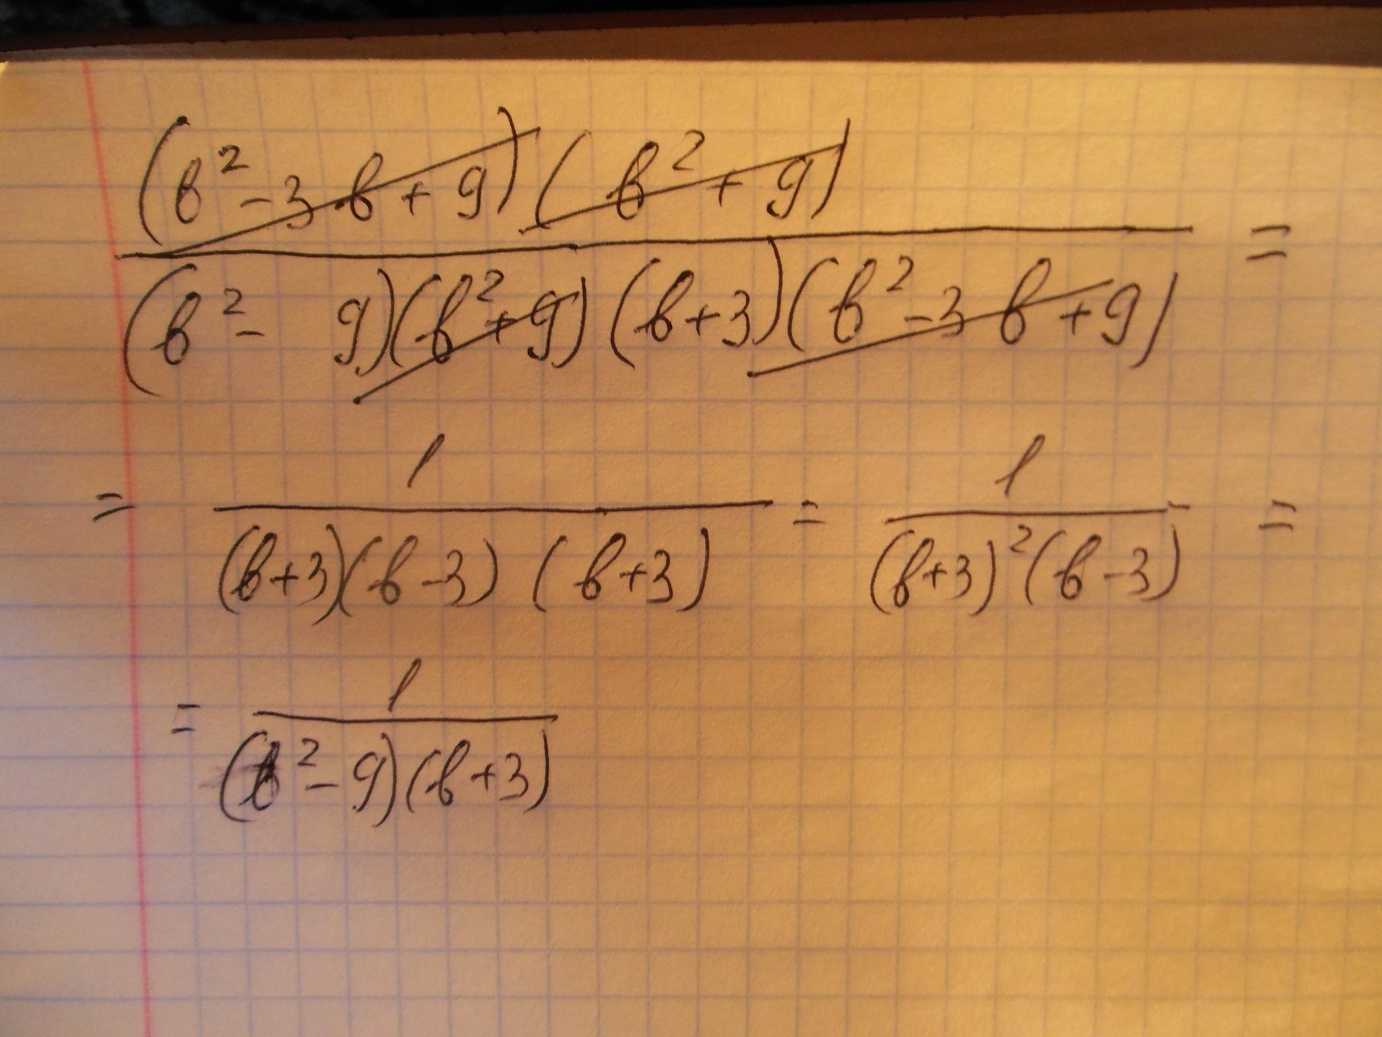 (b² - 3b + 9)(b² + 9)
(b² - 9)(b² + 9)(b + 3)(b² - 3b + 9) =
= 1 / (b+3)(b-3)(b+3) = 1 / (b+3)²(b-3) =
= 1 / (b² - 9)(b+3)